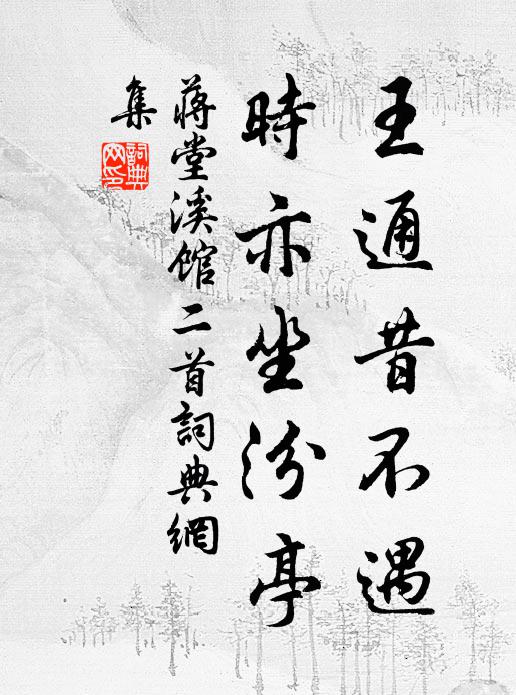 王通昔不遇
時亦坐汾亭
蔣堂溪馆二首詞典網
集
詞典网印